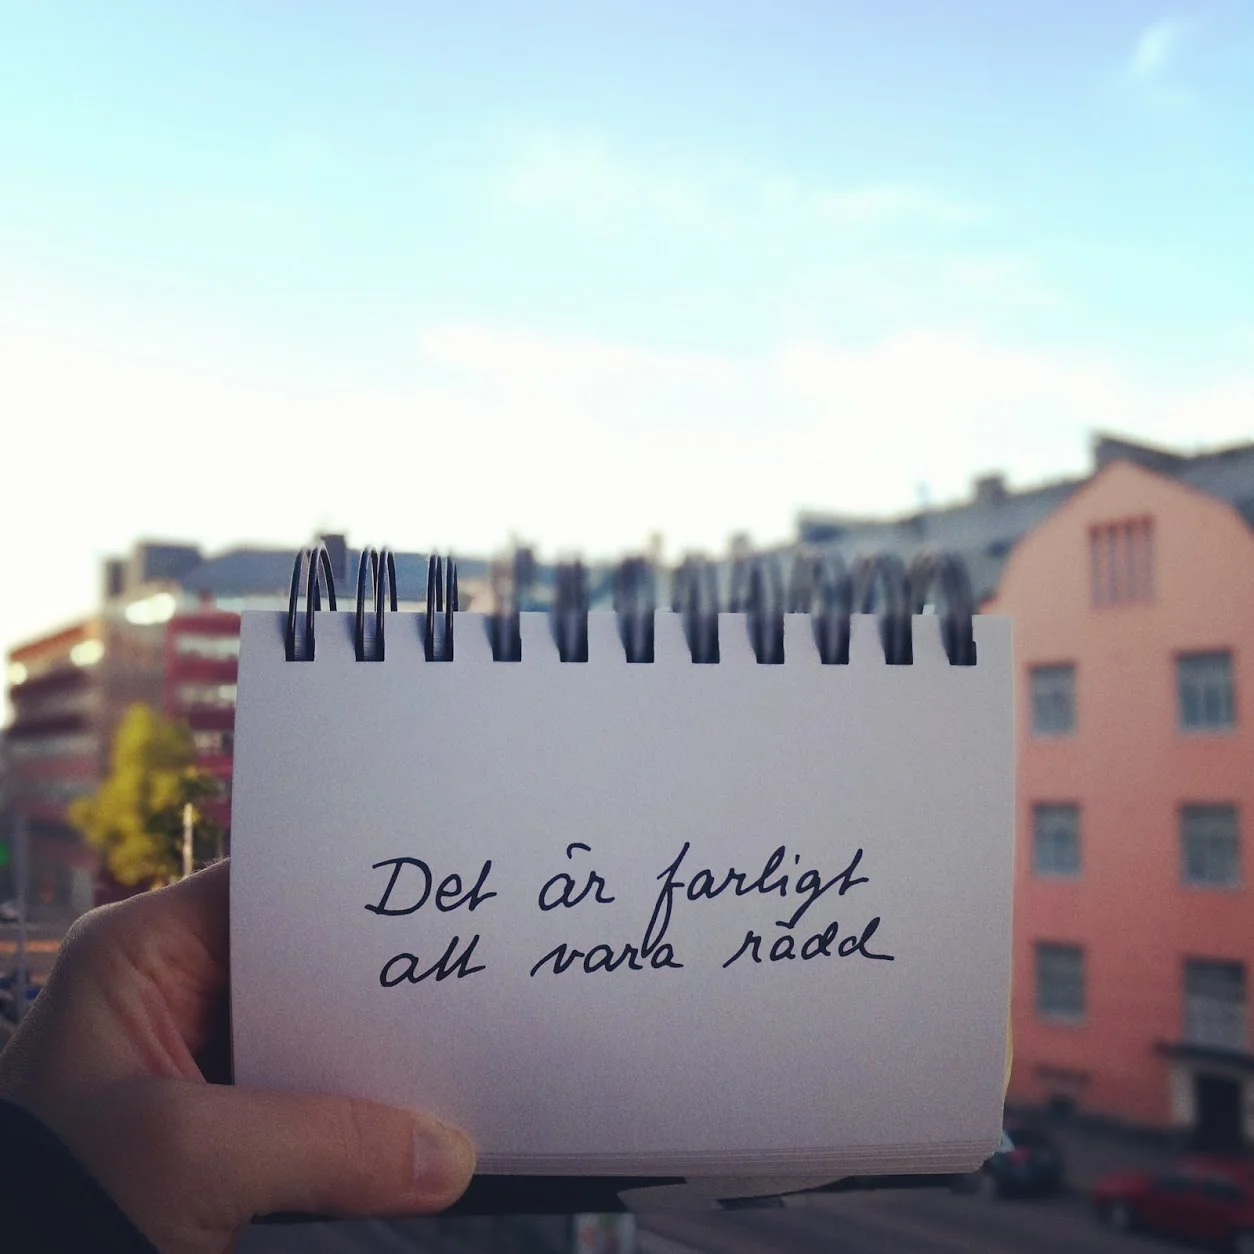 Det är farligt
att vara rädd